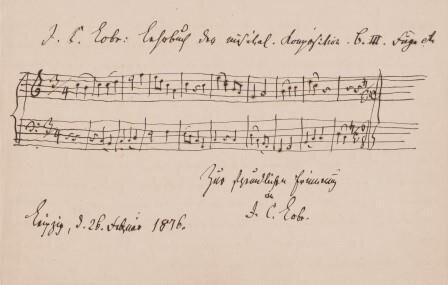 J. C. Lobe: Lehrbuch der musikal. Komposition. B. III. Fuge etc
Zur freundlichen Erinnerung
an
J. C. Lobe.
Leipzig, d. 26. Februar 1876.